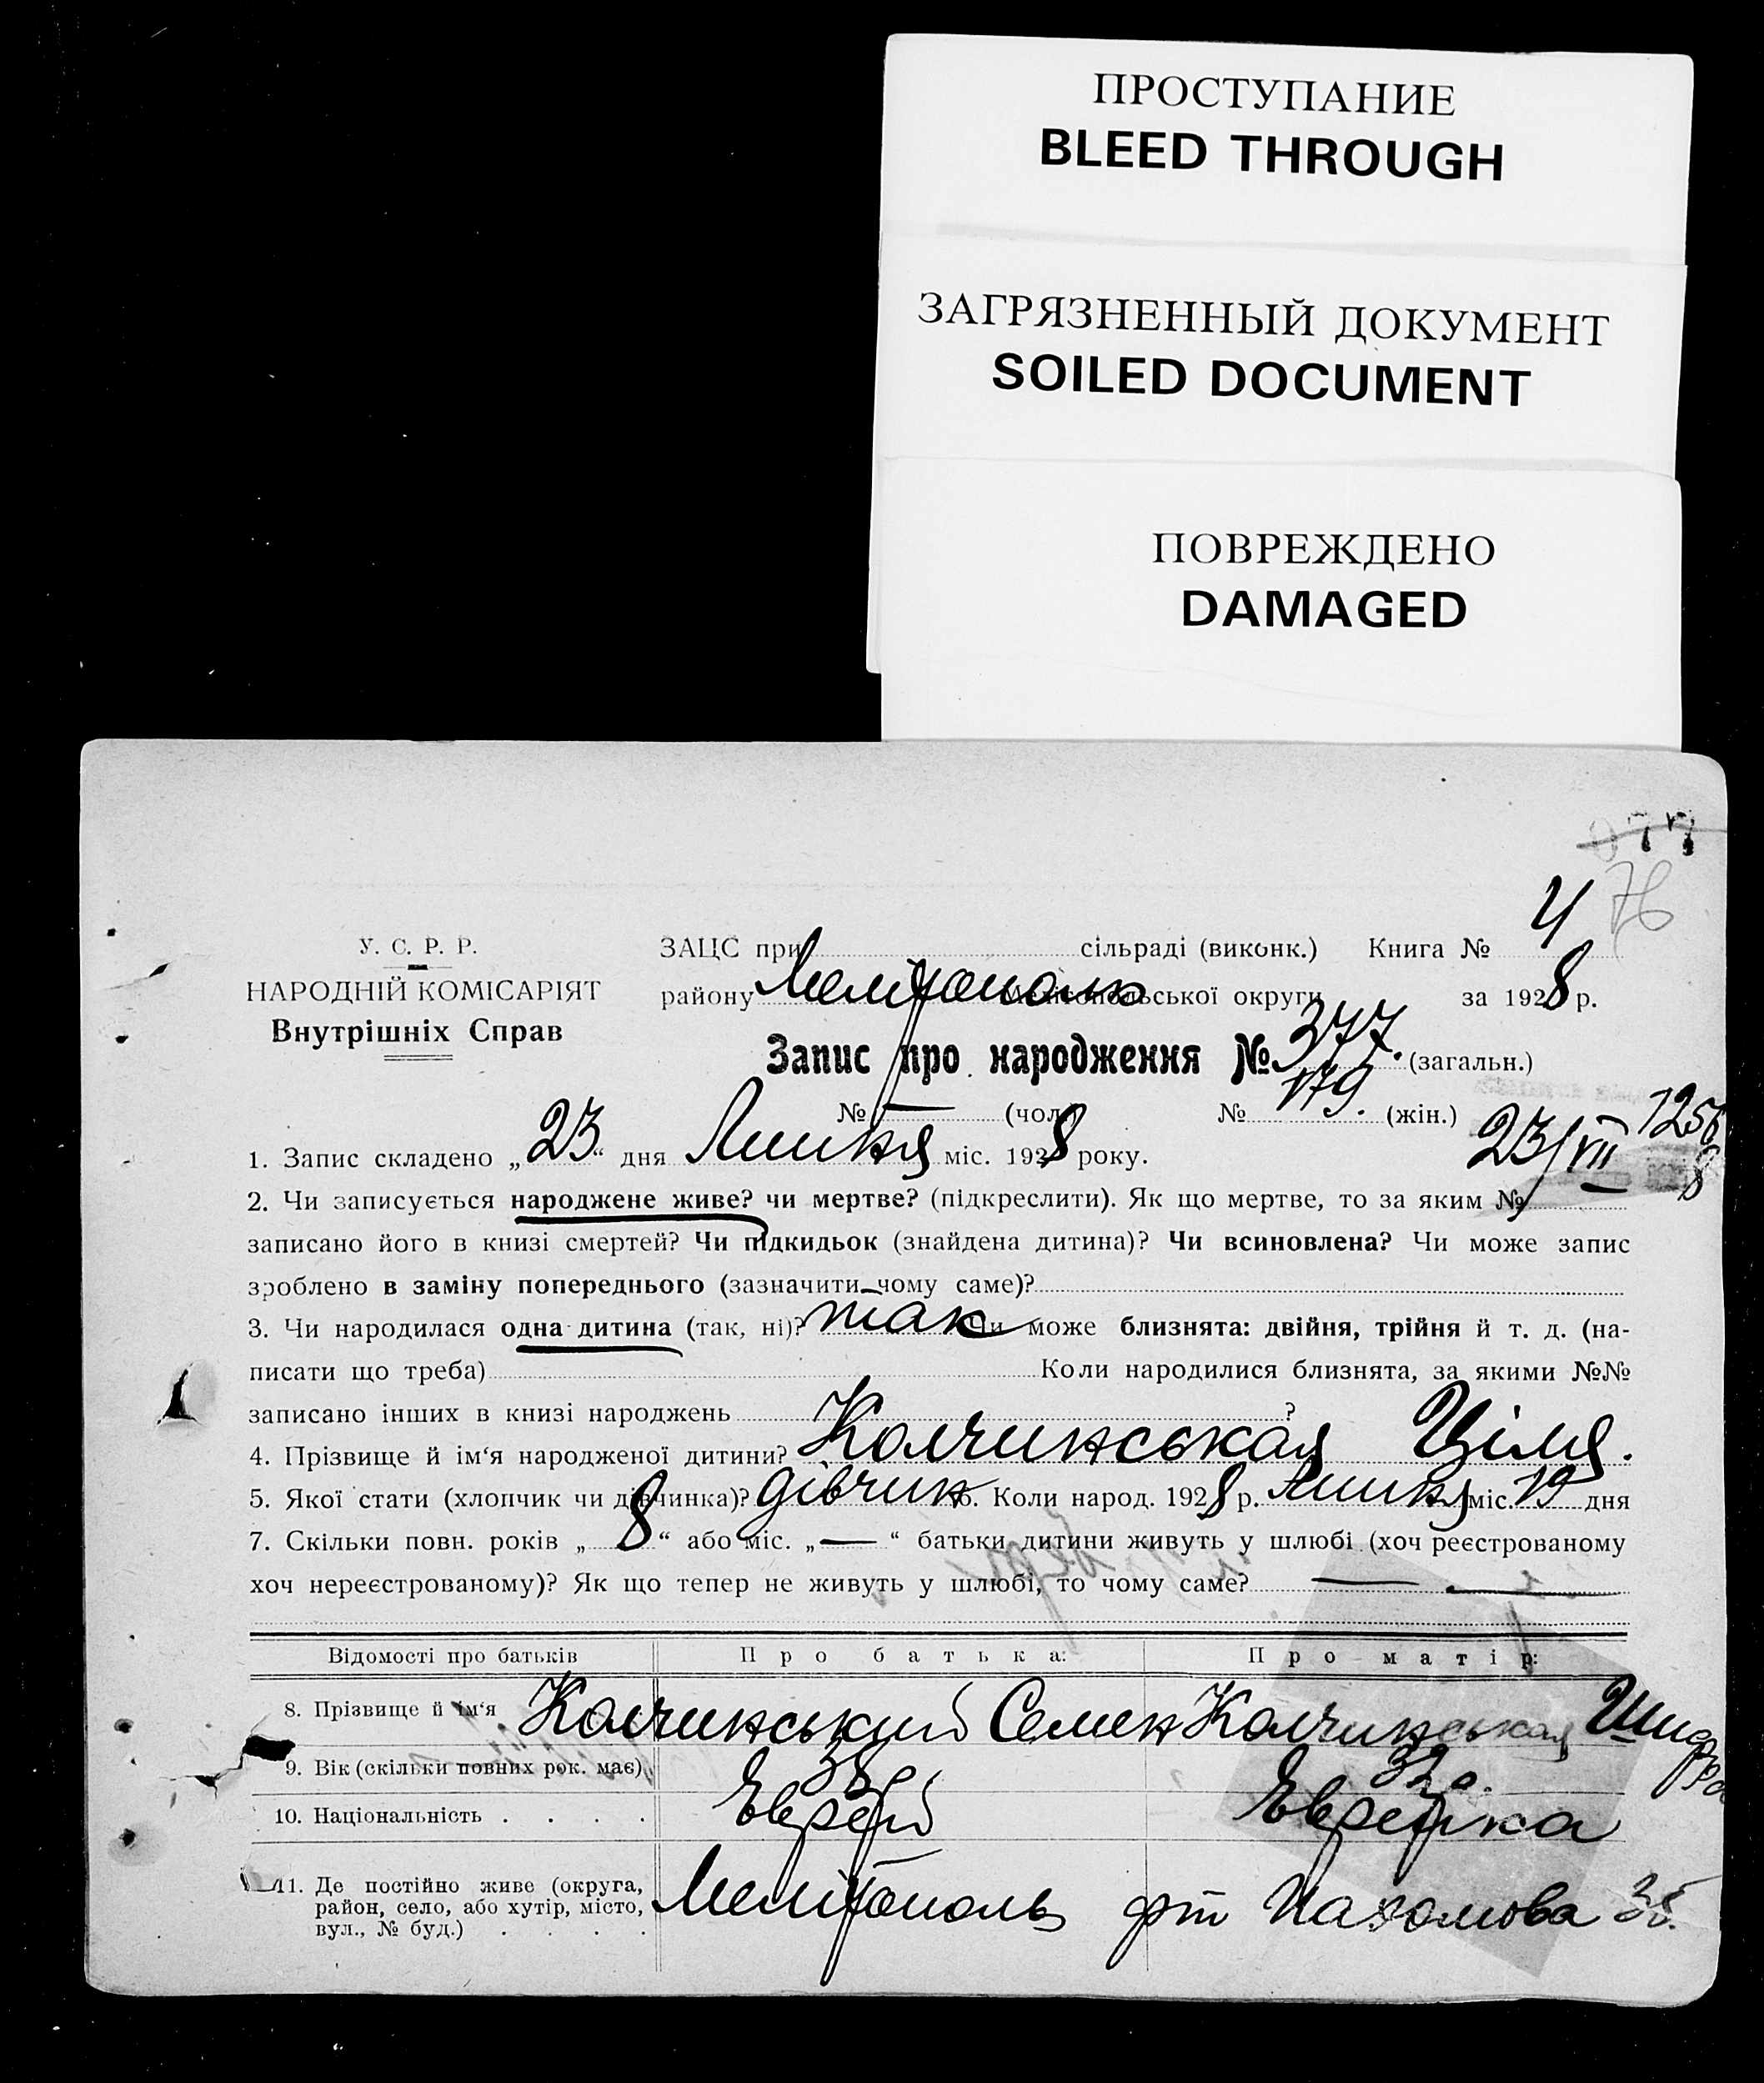 ПРОСТУПАНИЕ
BLEED THROUGH
ЗАГРЯЗНЕННЫЙ ДОКУМЕНТ
SOILED DOCUMENT
ПОВРЕЖДЕНО
DAMAGED
77
76
У. С. Р. Р.
НАРОДНІЙ КОМІСАРІЯТ
Внутрішніх Справ
ЗАЦС при сільраді (виконк.) Книга № 4
району Мелітополь Мелітопольської округи за 1928 р.
Запис про народження № 377. (загальн.)
№ — (чол.) № 179. (жін.)
1256
23/VII 8
1. Запис складено „23“ дня Липня міс. 1928 року.
2. Чи записується народжене живе? чи мертве? (підкреслити). Як що мертве, то за яким № —
записано його в книзі смертей? Чи підкидьок (знайдена дитина)? Чи всиновлена? Чи може запис
зроблено в заміну попереднього (зазначити чому саме)?
3. Чи народилася одна дитина (так, ні)? так Чи може близнята: двійня, трійня й т. д. (на-
писати що треба) Коли народилися близнята, за якими №№
записано інших в книзі народжень ?
4. Прізвище й ім‘я народженої дитини? Колчинськая Ціля.
5. Якої стати (хлопчик чи дівчинка)? дівчин 6. Коли народ. 1928 р. Липня міс. 19 дня
7. Скільки повн. років „8“ або міс. „—“ батьки дитини живуть у шлюбі (хоч реєстрованому
хоч нереєстрованому)? Як що тепер не живуть у шлюбі, то чому саме? — —
Відомості про батьків Про батька: Про матір:
8. Прізвище й ім‘я Колчинський Семен Колчинськая Шифра
9. Вік (скільки повних рок. має) 38 р. 32 р.
10. Національність . . . . Еврей Еврейка
11. Де постійно живе (округа,
район, село, або хутір, місто,
вул., № буд.) . . . .
Мелітополь Пахомова 35.